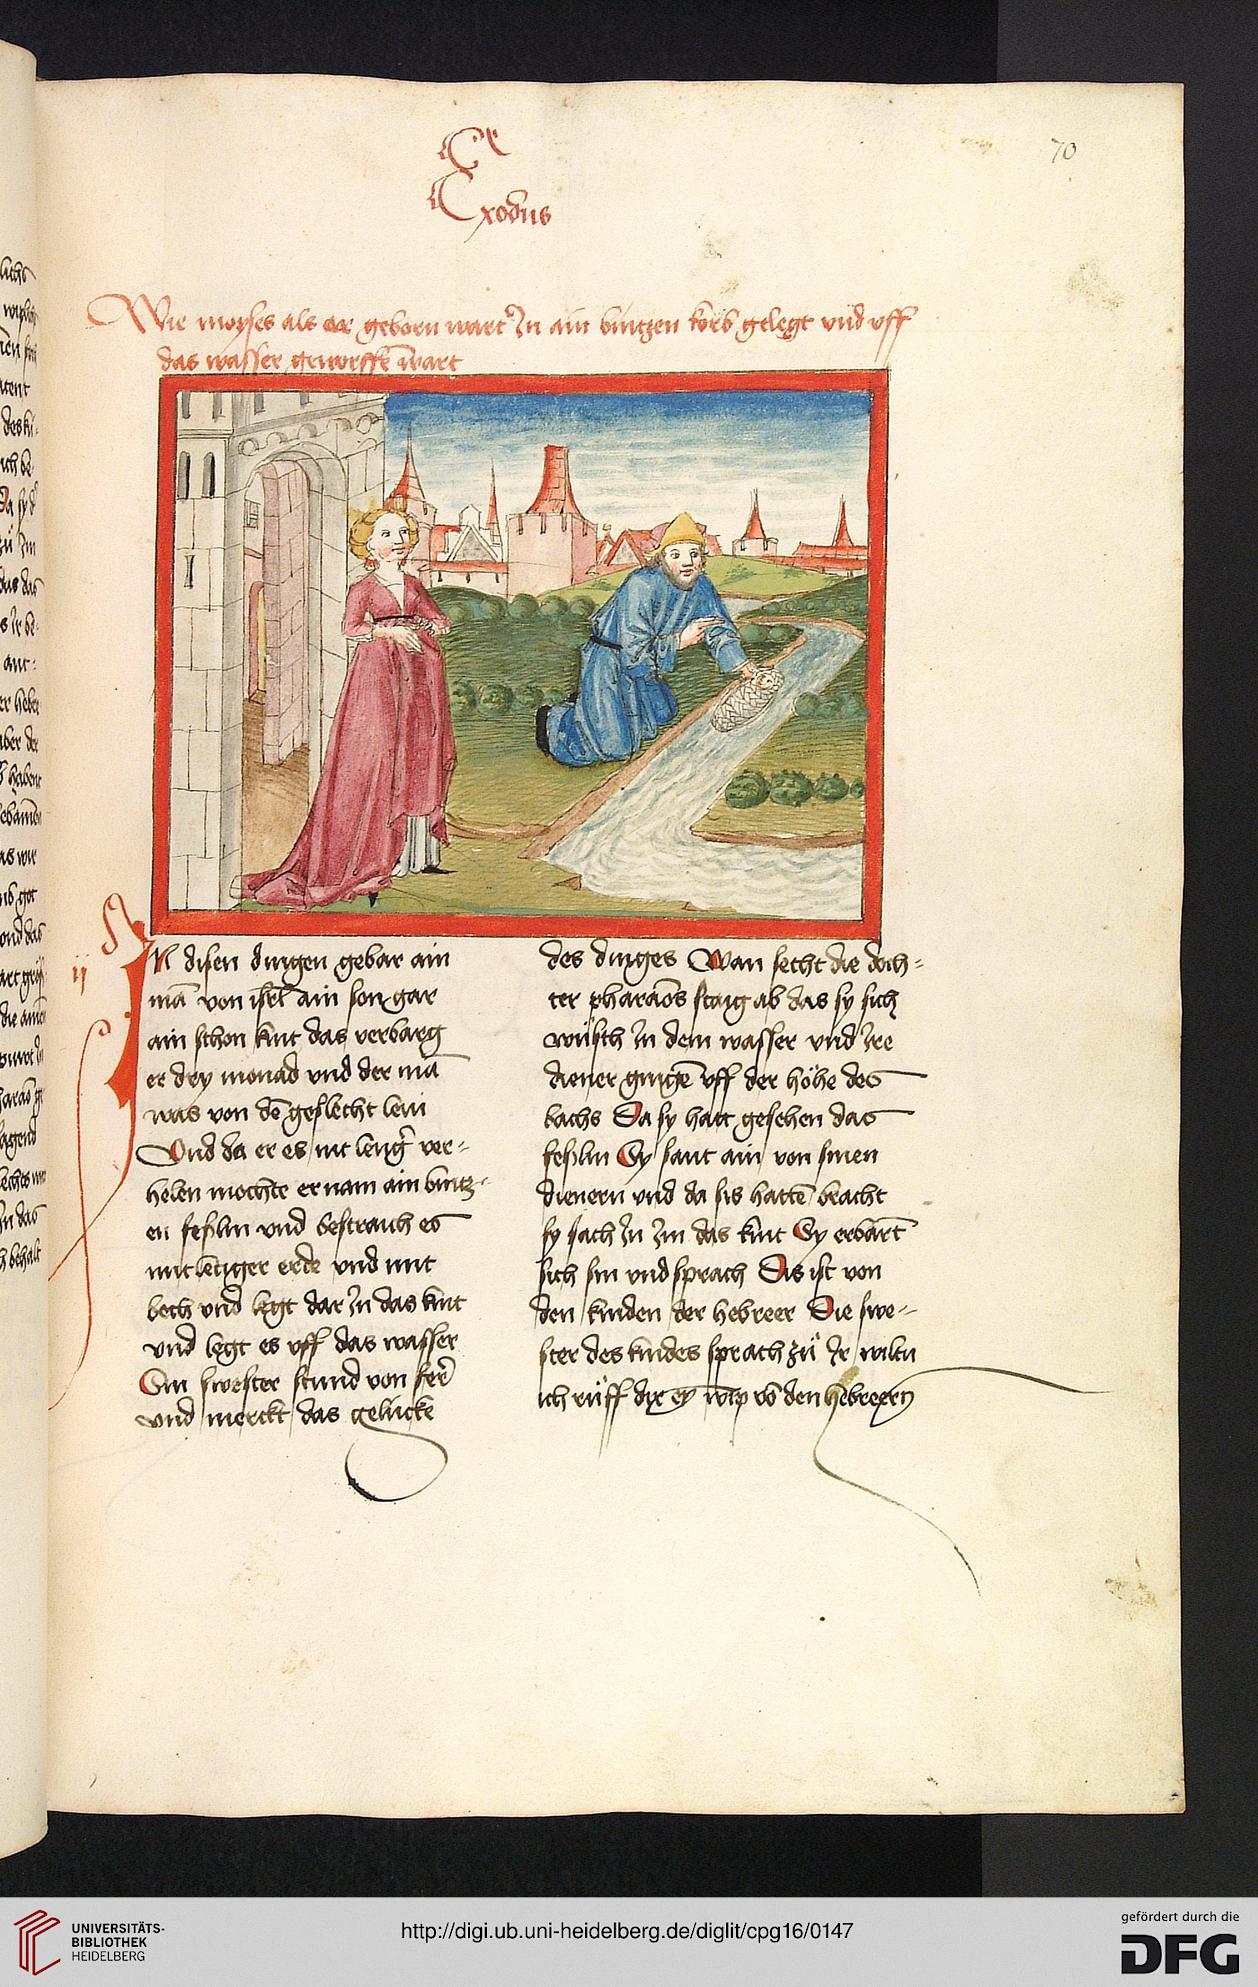 70
Er
Exodus
Wie moyses als er geborn wart Jn ain bintzen korb gelegt vnd vff
das wasser geworffē wart
ij
JN disen dingen gebar ain
mā von isrl ain son gar
ain schon kint das verbarg
er dry monad vnd der mā
was von dē geslecht leui
Vnd da er es nit leng̉ ver-
helen mochte er nam ain bintz-
en feslin vnd bestrauch es
mit lētiger erde vnd mit
bech vnd legt dar Jn das kint
vnd legt es vff das wasser
Sin swester stund von fer̉
vnd merckt das gelucke
des dinges Wan secht die doch-
ter pharaōs staig ab das sy sich
wüsch Jn dem wasser vnd Jre
diener gingē vff der höhe des
bachs Da sy hatt gesehen das
feslin Sy sant ain von sinen
dienern vnd da sis hattē beacht
sy sach Jn Jm das kint Sy erbart̄
sich sin vnd sprach Dis ist von
den kinden der hebreer Die swe-
ster des kindes sprach zů Jr wiltu
ich rüff dir ey wip vō den hebreern
UNIVERSITÄTS-
BIBLIOTHEK
HEIDELBERG
http://digi.ub.uni-heidelberg.de/diglit/cpg16/0147
gefördert durch die
DFG